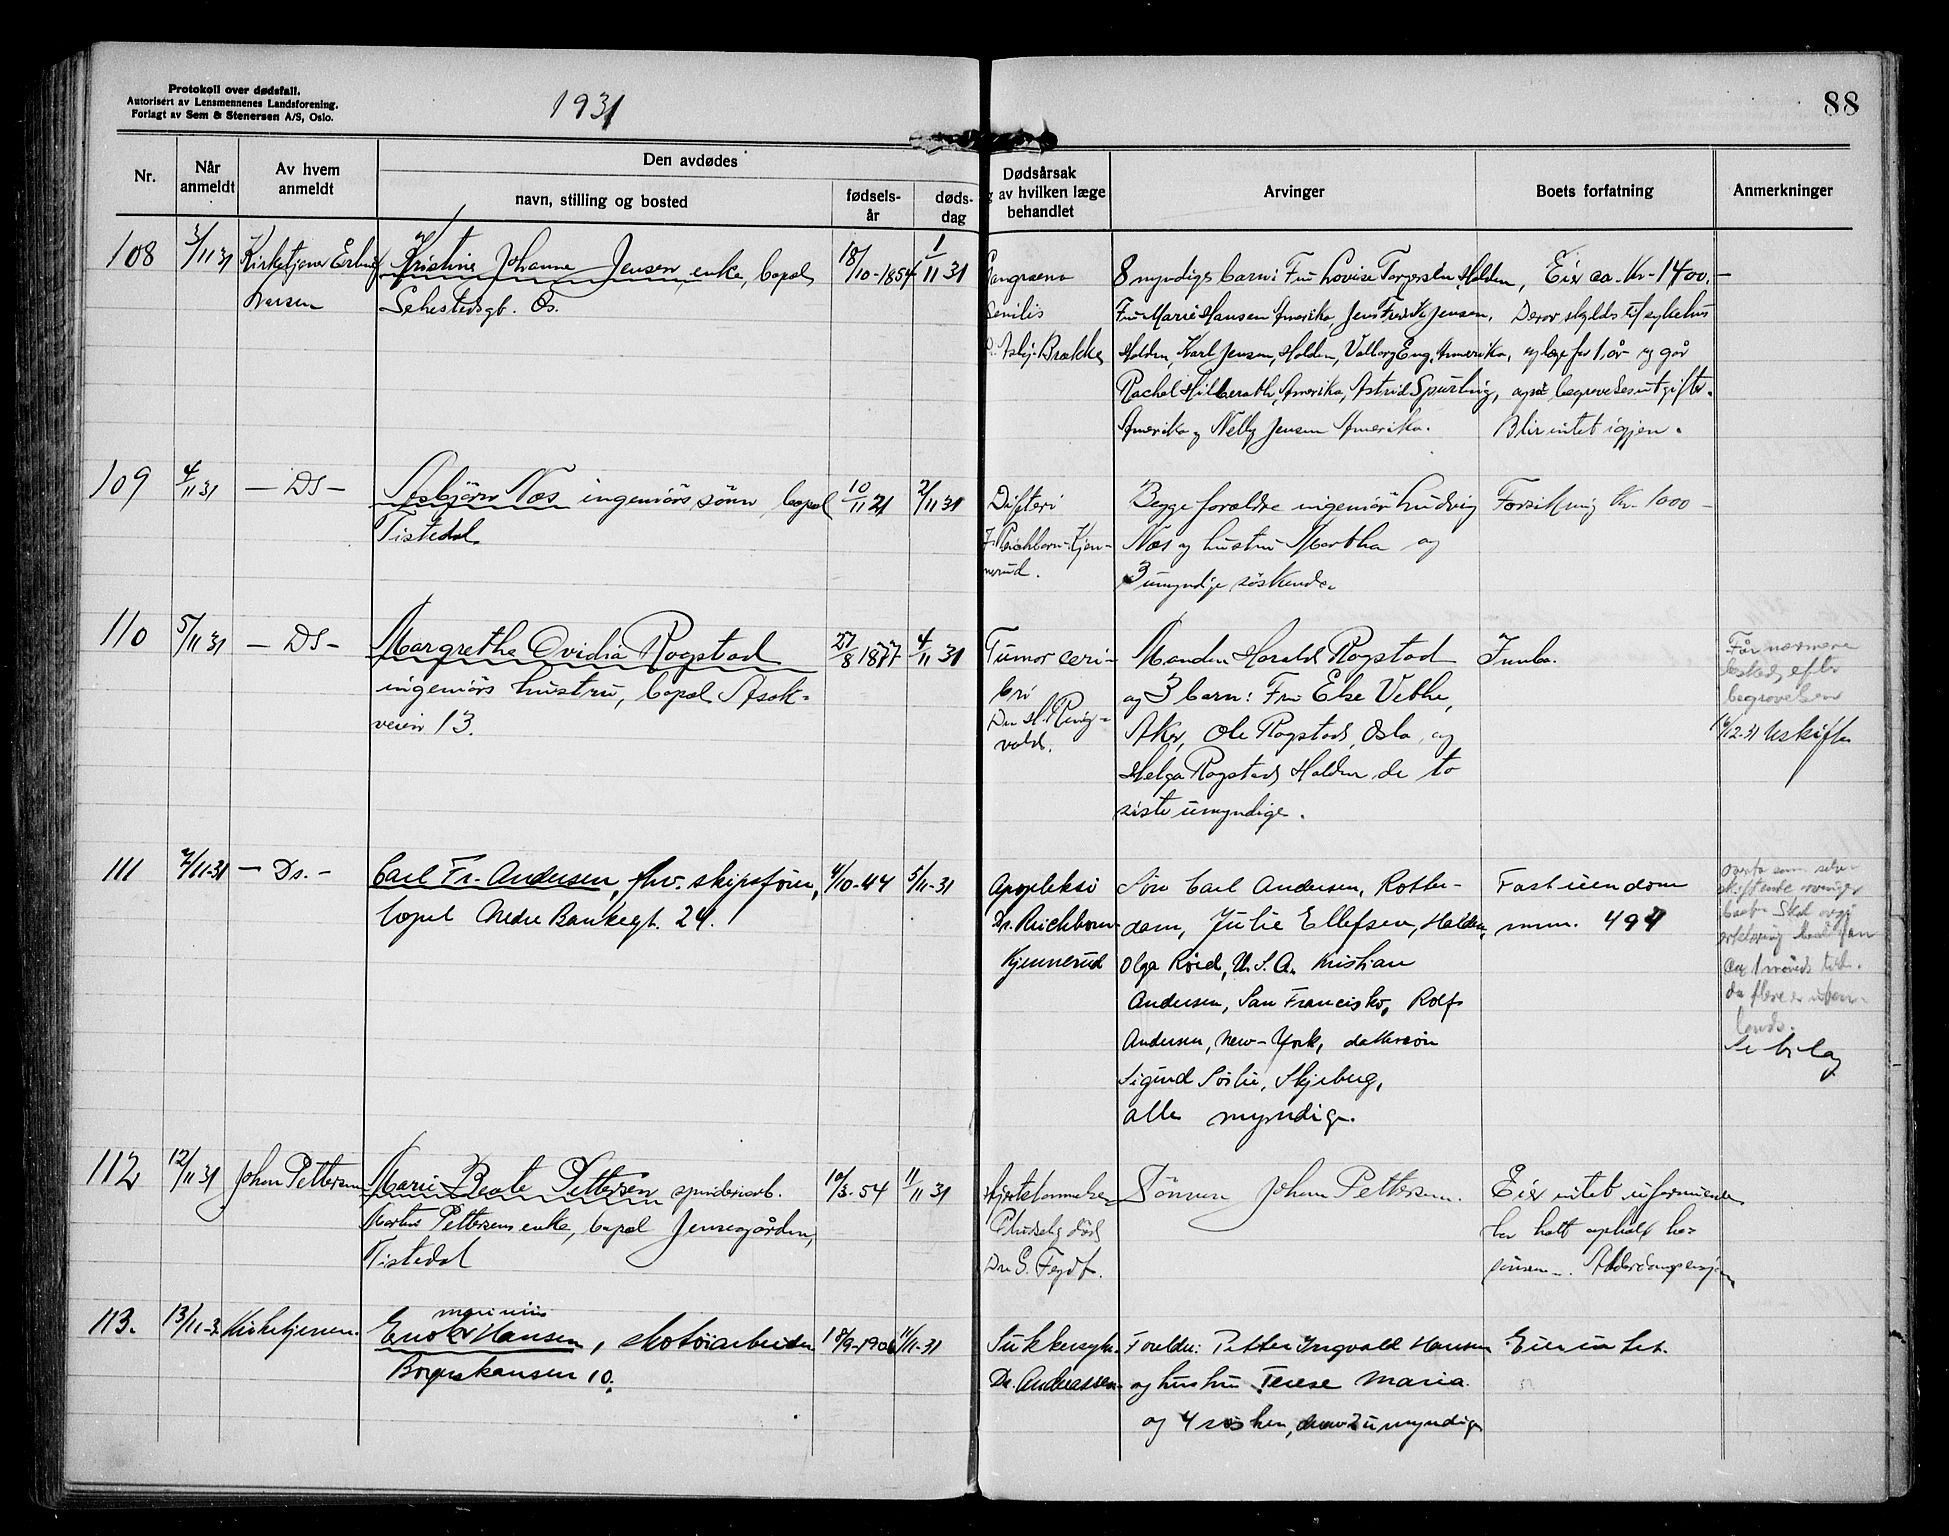 Protokoll over dødsfall.
Autorisert av Lensmennenes Landsforening.
Forlagt av Sem & Stenersen A/S, Oslo.
1931
88
Nr.
Når anmeldt
Av hvem anmeldt
Den avdødes
navn, stilling og bosted
fødsels-år
døds-dag
Dødsårsak
av hvilken læge
behandlet
Arvinger
Boets forfatning
Anmerkninger
108
3/11 31
Kirketjener
Larsen
Kristine Johanne Jensen, enke, bopæl
Sehestedsgt. Os.
18/10-1854
1/11 31
Gangræna
senilis
Brække
8 myndige barn: Fru Lovise Torgersen Halden,
Fru Marie Hansen Amerika, Jens Fredrik Jensen,
Halden, Karl Jensen, Halden, Valborg Eng, Amerika,
Rachel Hilberath, Amerika, Astrid Spurling,
Amerika og Nelly Jensen Amerika.
Eier ca. Kr 1400.-
Derav skyldes til sykehus
og læge for 1 år og går
også begravelsesutgifter.
Blir intet igjen.
109
4/11 31
- DS -
Asbjørn Næs ingeniørs sønn, bopæl
Tistedal.
10/11 21
2/11 31
Difteri
Reichborn-Kjen-
nerud.
Begge forældre ingeniør Ludvig
Næs og hustru Martha og
3 umyndige søskende.
Forsikring Kr. 1000-
110
5/11 31
- DS -
Margrethe Ovidia Rogstad
ingeniørs hustru, bopæl Asak-
veien 13.
27/8 1877
4/11 31
Tumor ceri-
bri
Manden Harald Rogstad
og 3 barn: Fru Else Vethe,
Aker, Ole Rogstad, Oslo, og
Helga Rogstad, Halden de to
siste umyndige.
Innbo.
Får nærmere
beskjed efter
begravelsen
Uskifte
111
7/11-31
- Ds. -
Carl Fr. Andersen, fhv. skipsfører,
bopæl Nedre Bankegt. 24.
4/10-44
5/11-31
Apopleksi
Dr. Reichborn-
Kjennerud
Sønn Carl Andersen, Rotter-
dam, Julie Ellefsen, Halden,
Olga Röed, U.S.A. Kristian
Andersen, San Francisko, Rolf
Andersen, New-York, dattersön
Sigurd Söslie, Skjeberg,
alle myndige.
Fast eiendom
mnm. 494
Overta som selv-
skiftende arvinger
boet. Skal avgi
erklæring
ca 1 måneds tid.
da flere er uten-
lands.
Se bilag
112
12/11 31
Johan Pettersen
Marie Beate Pettersen spinderiarb.
Martin Pettersens enke, bopæl Jensegården,
Tistedal
10/3-54
11/11 31
Hjertelammelse
Pludselig død
Dr. G. Feydt.
Sönnen Johan Pettersen.
Eier intet uformuende
har hatt ophold hos
sönnen. Alderdomspensjon
113.
13/11-3
Kirketjeneren.
marinius
Enok Hansen, skotöiarbeider
Borgerskansen 10.
18/9-1906
11/11-31
Sukkersyke
Dr. Andreassen
Foreldre: Petter Ingvald Hansen
og hustru Terese Maria
og 4 søsken, derav 2 umyndige
Eier intet.